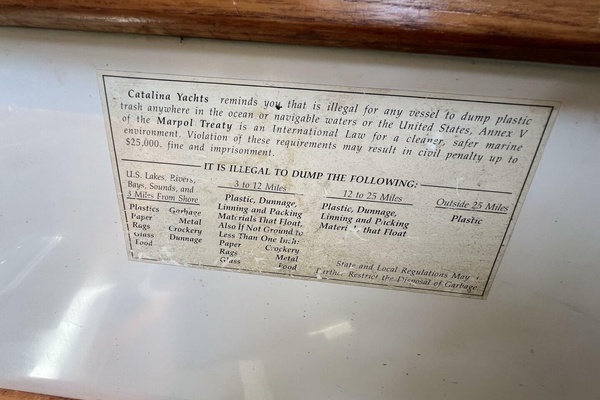 Catalina Yachts reminds you that is illegal for any vessel to dump plastic
trash anywhere in the ocean or navigable waters or the United States, Annex V
of the Marpol Treaty is an International Law for a cleaner, safer marine
environment. Violation of these requirements may result in civil penalty up to
$25,000. fine and imprisonment.
IT IS ILLEGAL TO DUMP THE FOLLOWING:
U.S. Lakes, Rivers,
Bays, Sounds, and
3 Miles From Shore
Plastics Garbage
Paper Metal
Rags Crockery
Glass Dunnage
Food
3 to 12 Miles
Plastic, Dunnage,
Linning and Packing
Materials That Float,
Also If Not Ground to
Less Than One Inch:
Paper Crockery
Rags Metal
Glass Food
12 to 25 Miles
Plastic, Dunnage,
Linning and Packing
Materials that Float
Outside 25 Miles
Plastic
State and Local Regulations May
Further Restrict the Disposal of Garbage